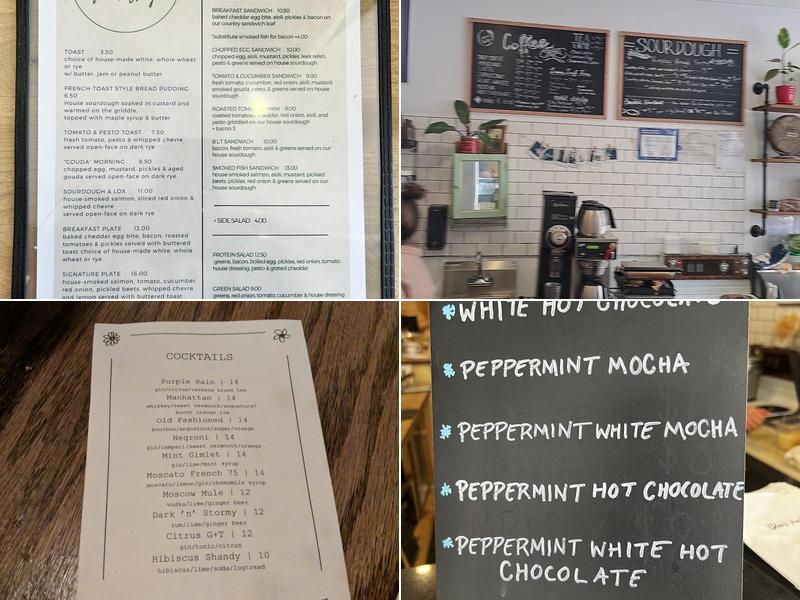 TOAST 3.50
choice of house-made white, whole wheat
or rye
w/ butter, jam or peanut butter
FRENCH-TOAST STYLE BREAD PUDDING
6.50
House sourdough soaked in custard and
warmed on the griddle,
topped with maple syrup & butter
TOMATO & PESTO TOAST 7.50
fresh tomato, pesto & whipped chevre
served open-face on dark rye
"GOUDA" MORNING 8.50
chopped egg, mustard, pickles & aged
gouda served open-face on dark rye
SOURDOUGH & LOX 11.00
house-smoked salmon, sliced red onion &
whipped chevre
served open-face on dark rye
BREAKFAST PLATE 13.00
baked cheddar egg bite, bacon, roasted
tomatoes & pickles served with buttered
toast choice of house-made white, whole
wheat or rye
SIGNATURE PLATE 16.00
house-smoked salmon, tomato, cucumber,
red onion, pickled beets, whipped chevre
and lemon served with buttered toast
BREAKFAST SANDWICH 10.50
baked cheddar egg bite, aioli, pickles & bacon on
our country sandwich loaf
*substitute smoked fish for bacon +4.00
CHOPPED EGG SANDWICH 10.00
chopped egg, aioli, mustard, pickles, leek relish,
pesto & greens served on house sourdough
TOMATO & CUCUMBER SANDWICH 9.00
fresh tomato, cucumber, red onion, aioli, mustard,
smoked gouda, pesto & greens served on house
sourdough
ROASTED TOMATO PANINI 9.00
roasted tomatoes, cheddar, red onion, aioli, and
pesto griddled on our house sourdough
+ bacon 3
B.L.T SANDWICH 10.00
bacon, fresh tomato, aioli & greens served on our
house sourdough
SMOKED FISH SANDWICH 13.00
house-smoked salmon, aioli, mustard, pickled
beets, pickles, red onion & greens served on our
house sourdough
+ SIDE SALAD 4.00
PROTEIN SALAD 12.50
greens, bacon, boiled egg, pickles, red onion, tomato,
house dressing, pesto & grated cheddar
GREEN SALAD 9.00
greens, red onion, tomato, cucumber & house dressing
Coffee
TEA
SOURDOUGH
COCKTAILS
Purple Rain | 14
gin/citrus/verbena blues tea
Manhattan | 14
whiskey/sweet vermouth/angostura/
burnt orange rim
Old Fashioned | 14
bourbon/angostura/sugar/orange
Negroni | 14
gin/campari/sweet vermouth/orange
Mint Gimlet | 14
gin/lime/mint syrup
Moscato French 75 | 14
moscato/lemon/gin/chamomile syrup
Moscow Mule | 12
vodka/lime/ginger beer
Dark 'n' Stormy | 12
rum/lime/ginger beer
Citrus G+T | 12
gin/tonic/citrus
Hibiscus Shandy | 10
hibiscus/lime/soda/lugtread
WHITE HOT CHOCOLATE
PEPPERMINT MOCHA
PEPPERMINT WHITE MOCHA
PEPPERMINT HOT CHOCOLATE
PEPPERMINT WHITE HOT
CHOCOLATE